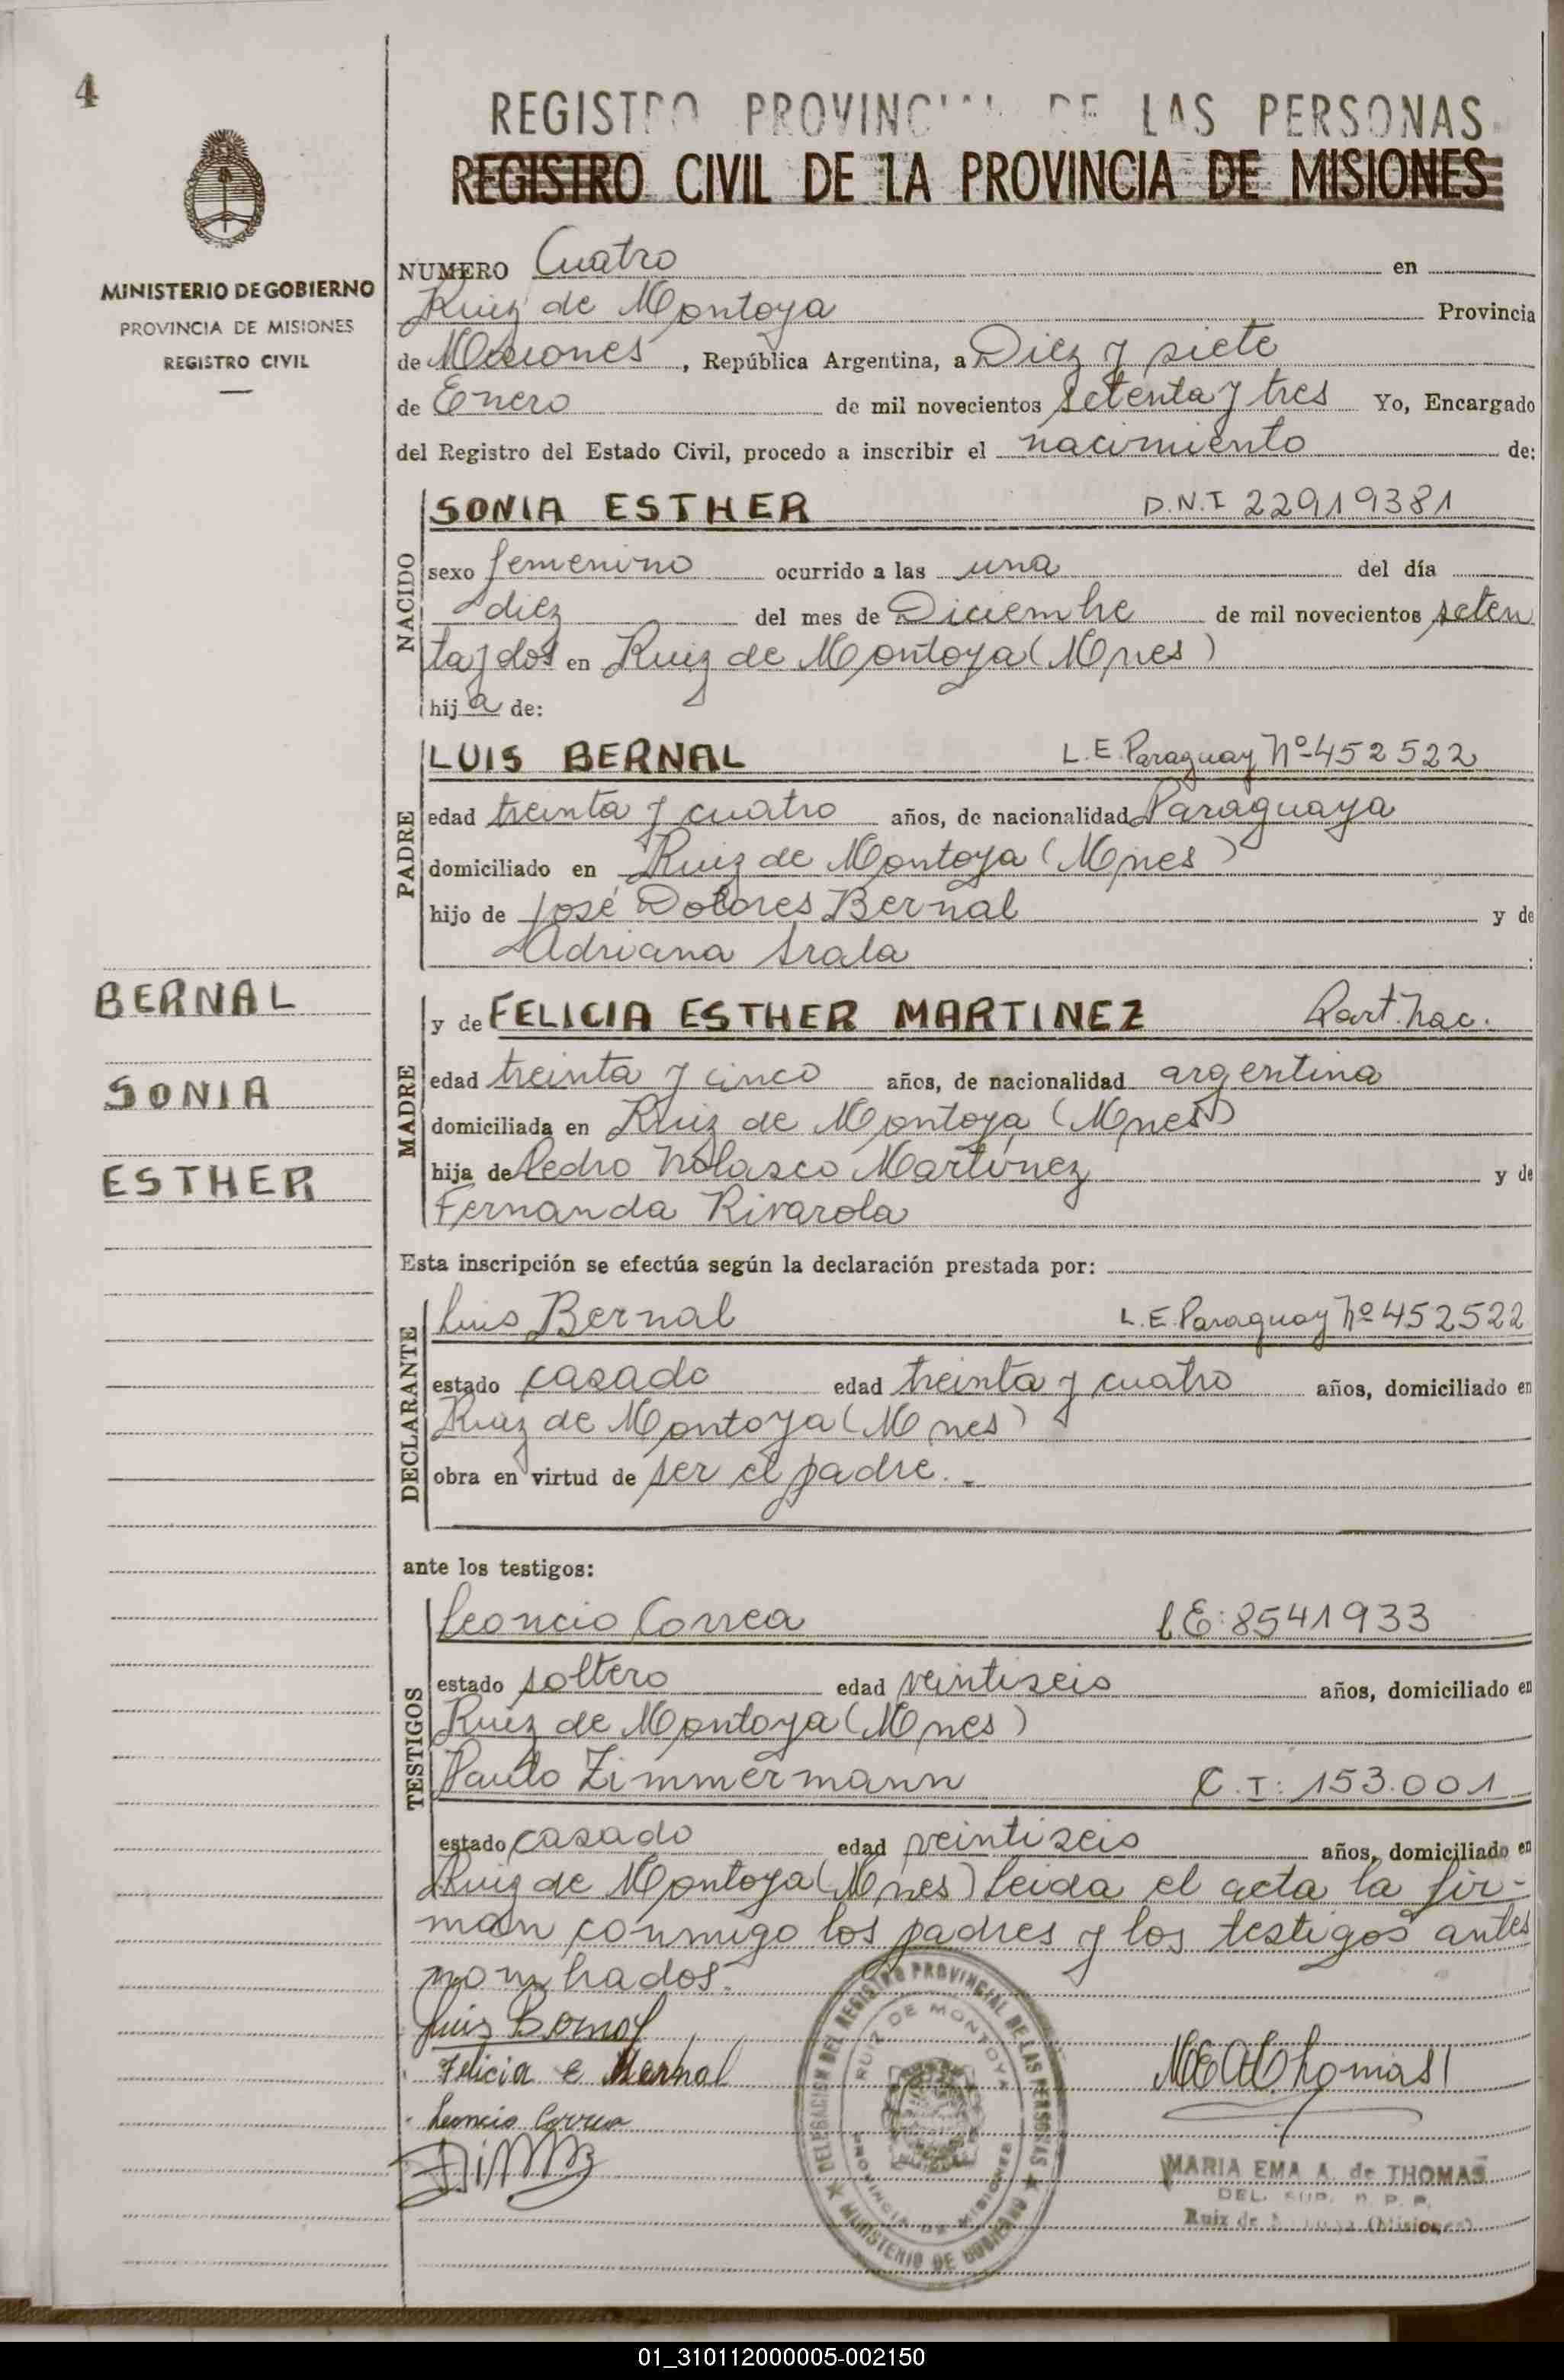 4
REGISTRO PROVINCIAL DE LAS PERSONAS
REGISTRO CIVIL DE LA PROVINCIA DE MISIONES
MINISTERIO DE GOBIERNO
PROVINCIA DE MISIONES
REGISTRO CIVIL
NUMERO Cuatro en
Ruiz de Montoya Provincia
de Misiones, República Argentina, a Diez y siete
de Enero de mil novecientos setenta y tres Yo, Encargado
del Registro del Estado Civil, procedo a inscribir el nacimiento de:
NACIDO
SONIA ESTHER D.N.I 22919381
sexo femenino ocurrido a las una del día
diez del mes de Diciembre de mil novecientos seten
ta y dos en Ruiz de Montoya (Mnes)
hija de:
PADRE
LUIS BERNAL L.E. Paraguay Nº 452522
edad treinta y cuatro años, de nacionalidad Paraguaya
domiciliado en Ruiz de Montoya (Mnes)
hijo de José Dolores Bernal y de
Adriana Srala ;
BERNAL
SONIA
ESTHER
MADRE
y de FELICIA ESTHER MARTINEZ Part. nac.
edad treinta y cinco años, de nacionalidad argentina
domiciliada en Ruiz de Montoya (Mnes)
hija de Pedro Nolasco Martínez y de
Fernanda Rivarola
Esta inscripción se efectúa según la declaración prestada por:
DECLARANTE
Luis Bernal L.E. Paraguay Nº 452522
estado casado edad treinta y cuatro años, domiciliado en
Ruiz de Montoya (Mnes)
obra en virtud de ser el padre.-
ante los testigos:
TESTIGOS
Leoncio Correa L.E: 8541933
estado soltero edad veintiseis años, domiciliado en
Ruiz de Montoya (Mnes)
Paulo Zimmermann C.I: 153.001
estado casado edad veintiseis años, domiciliado en
Ruiz de Montoya (Mnes) leida el acta la fir-
man conmigo los padres y los testigos antes
nombrados.
Luis Bernal
Felicia E Bernal
Leoncio Correa
DELEGACION DEL REGISTRO PROVINCIAL DE LAS PERSONAS
RUIZ DE MONTOYA
PROVINCIA DE MISIONES
MINISTERIO DE GOBIERNO
MEAThomas
MARIA EMA A. de THOMAS
DEL. SUP. R. P. P.
Ruiz de Montoya (Misiones)
01_310112000005-002150